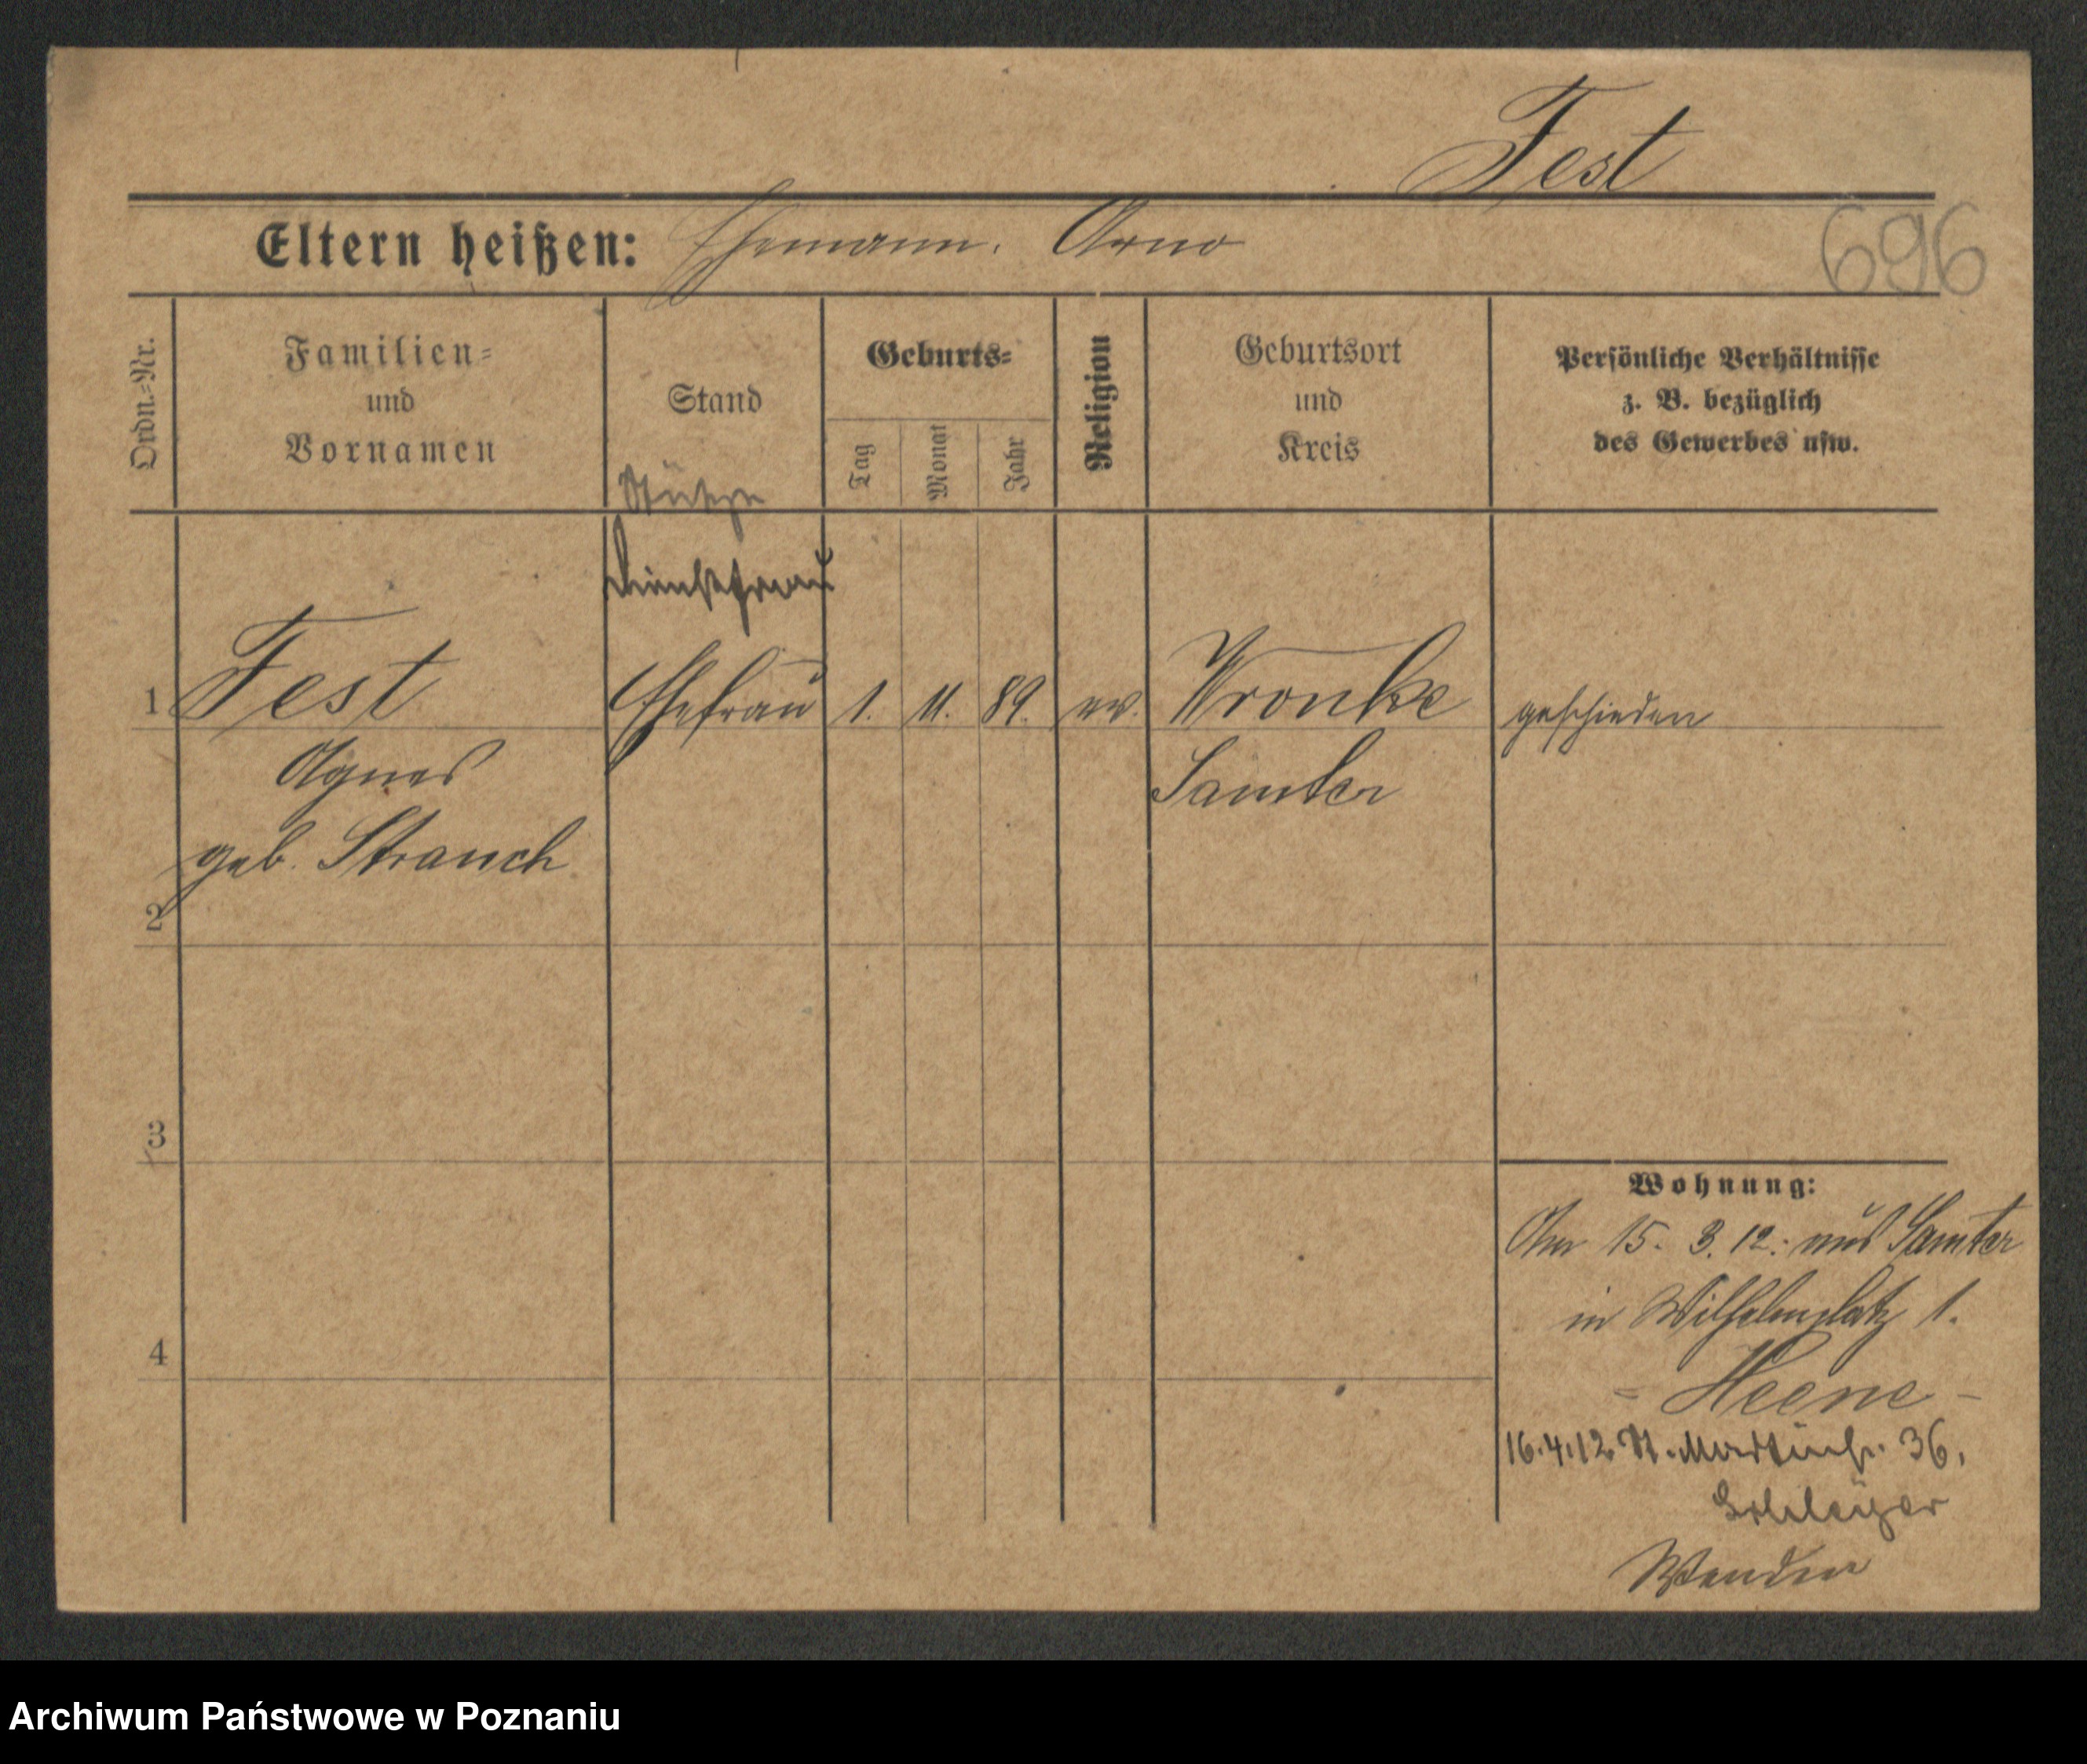 Fest
Eltern heißen: Ehemann. Arno
696
Ordn.=Nr.
Familien=
und
Vornamen
Stand
Geburts=
Tag
Monat
Jahr
Religion
Geburtsort
und
Kreis
Persönliche Verhältnisse
z. B. bezüglich
des Gewerbes usw.
Stütze
Dienstfrau
1 Fest Ehefrau 1. 11. 89. ev. Wronke geschieden
Agnes Samter
geb. Strauch
2
3
4
Wohnung:
Am 15. 3. 12: aus Samter
in Wilhelmplatz 1.
- Heene -
16.4.12 St. Martinstr. 36,
Wenden
Archiwum Państwowe w Poznaniu